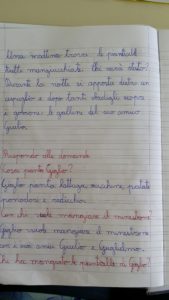 Una mattina trova le piantine
tutte mangiucchiate. Che sarà stato?
Durante la notte si apposta dietro un
cespuglio e dopo tanti sbadigli scopre
i golosoni: le galline del suo amico
Giulio.
Rispondo alle domande
Cosa pianta Goglio?
Goglio pianta lattuga, zucchine, patate
pomodori e radicchio.
Con chi vuole mangiare il minestrone?
Goglio vuole mangiare il minestrone
con i suoi amici Giulio e Guglielmo.
Chi ha mangiato le piantine di Goglio?